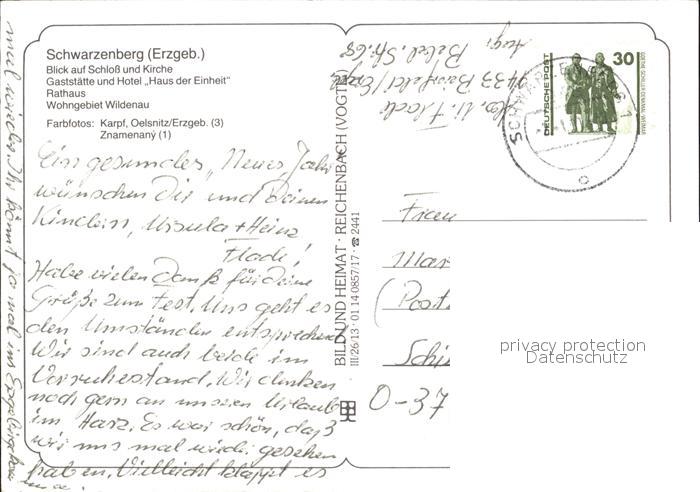 Schwarzenberg (Erzgeb.)
Blick auf Schloß und Kirche
Gaststätte und Hotel „Haus der Einheit"
Rathaus
Wohngebiet Wildenau
Farbfotos: Karpf, Oelsnitz/Erzgeb. (3)
Znamenaný (1)
Ein gesundes „Neues Jahr
wünschen Dir und Deinen
Kindern, Ursula + Heinz
Flade!
Habe vielen Dank für Deine
Grüße zum Fest. Uns geht es
den Umständen entsprechend
Wir sind auch beide im
Vorruhestand. Wir denken
noch gern an unseren Urlaub
im Harz. Es war schön, daß
wir uns mal wieder gesehen
haben. Vielleicht klappt es
mal wieder. Ihr könnt ja mal ins Erzgebirge
BILD UND HEIMAT · REICHENBACH (VOGTL)
III/26/13 · 01 14 0857/17 · ☎ 2441
U. Flade
9433
Bebel-Str. 68
DEUTSCHE POST
30
SCHWARZENBERG 1
Frau
(Post
O-37
privacy protection
Datenschutz